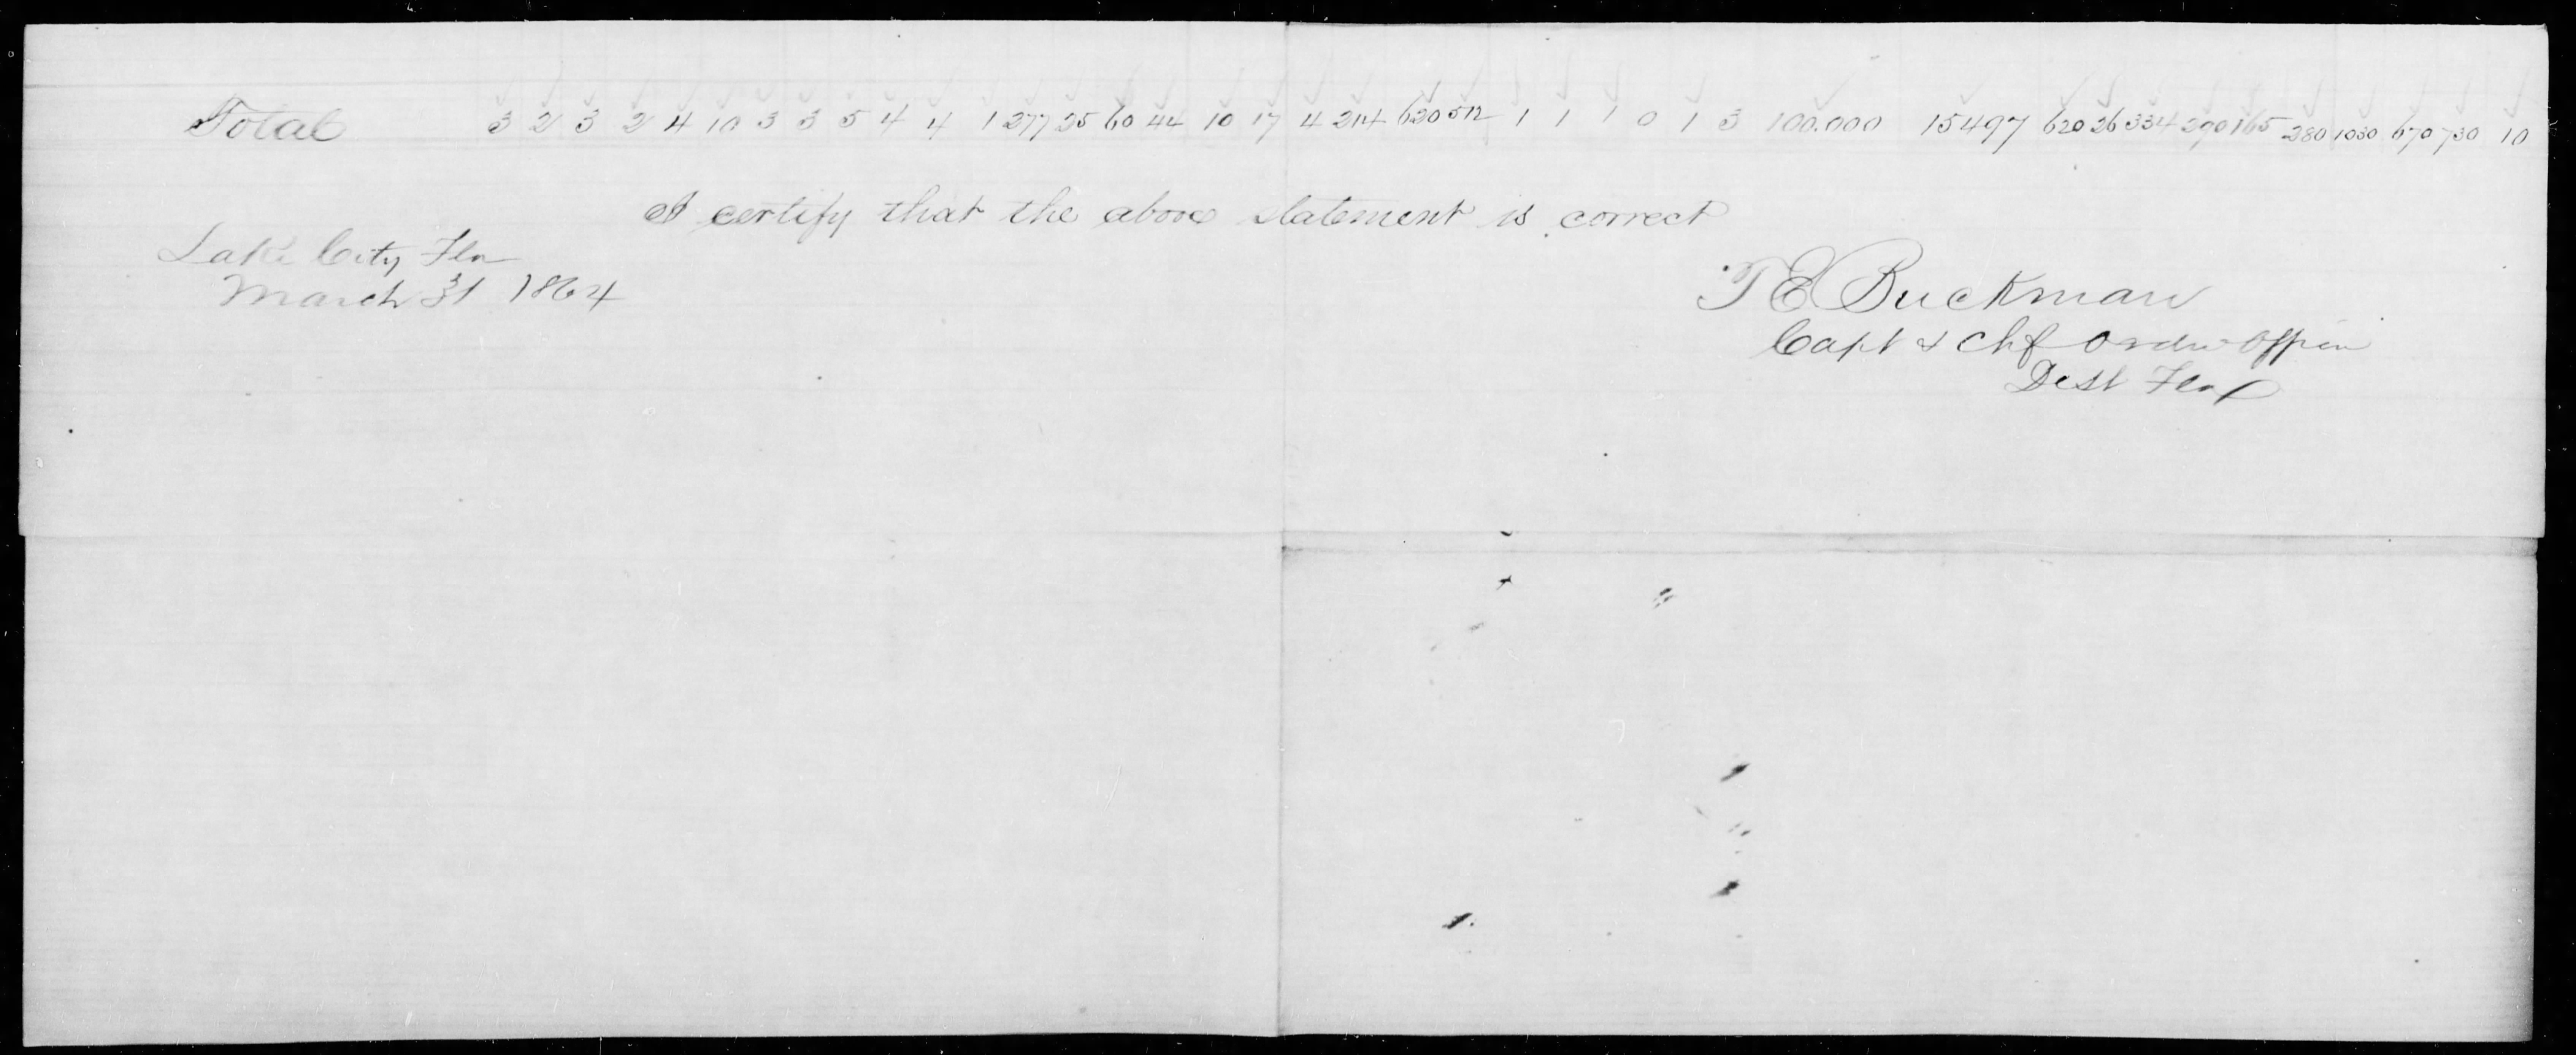 Total 3 2 3 2 4 10 3 3 5 4 4 1 277 25 60 44 10 17 4 214 620 512 1 1 1 0 1 3 100.000 15497 620 26 334 290 165 280 1030 670 730 10
I certify that the above statement is correct
Lake City Fla
March 31 1864
T E Buckman
Capt & Chf Ordn Officer
Dist Fla